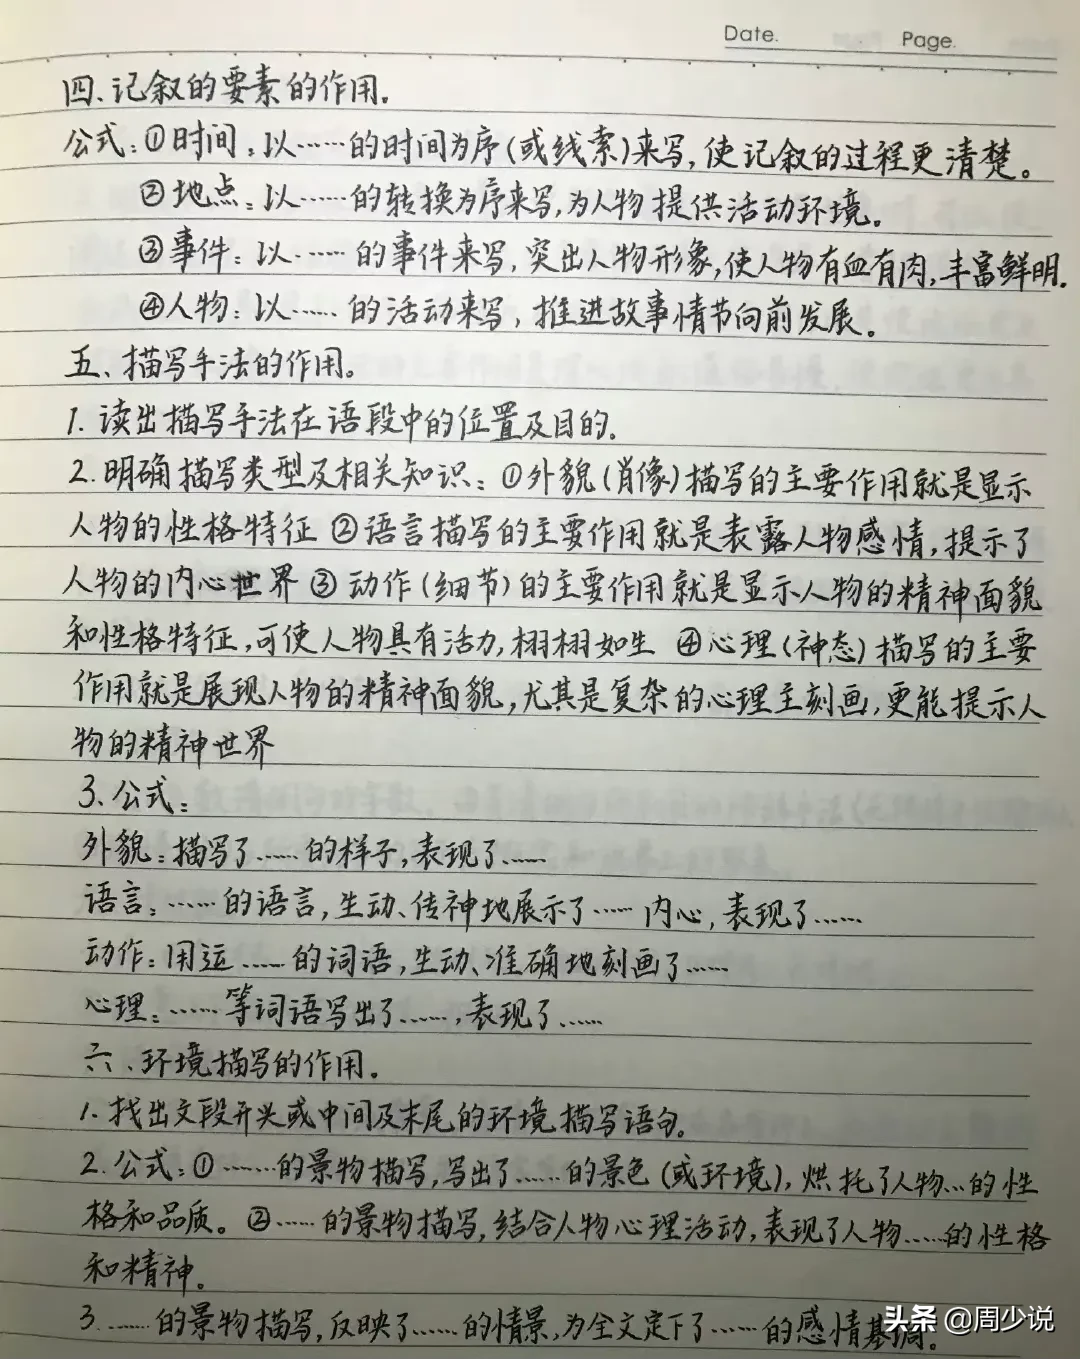 Date. Page.
四、记叙的要素的作用.
公式:①时间:以……的时间为序(或线索)来写,使记叙的过程更清楚。
②地点:以……的转换为序来写,为人物提供活动环境。
③事件:以……的事件来写,突出人物形象,使人物有血有肉,丰富鲜明.
④人物:以……的活动来写,推进故事情节向前发展。
五、描写手法的作用。
1.读出描写手法在语段中的位置及目的.
2.明确描写类型及相关知识:①外貌(肖像)描写的主要作用就是显示
人物的性格特征 ②语言描写的主要作用就是表露人物感情,提示了
人物的内心世界 ③动作(细节)的主要作用就是显示人物的精神面貌
和性格特征,可使人物具有活力,栩栩如生 ④心理(神态)描写的主要
作用就是展现人物的精神面貌,尤其是复杂的心理主刻画,更能提示人
物的精神世界
3.公式:
外貌:描写了……的样子,表现了……
语言:……的语言,生动、传神地展示了……内心,表现了……
动作:用运……的词语,生动、准确地刻画了……
心理:……等词语写出了……,表现了……
六、环境描写的作用.
1.找出文段开头或中间及末尾的环境描写语句.
2.公式:①……的景物描写,写出了……的景色(或环境),烘托了人物…的性
格和品质。②……的景物描写,结合人物心理活动,表现了人物……的性格
和精神.
3.……的景物描写,反映了……的情景,为全文定下了……的感情基调。
头条 @周少说